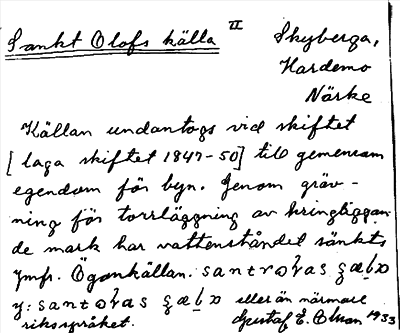 Sankt Olofs källa II Skyberga,
Hardemo
Närke
Källan undantogs vid skiftet
[laga skiftet 1847-50] till gemensam
egendom för byn. Genom gräv-
ning för torrläggning av kringliggan-
de mark har vattenståndet sänkts
Jmfr. Ögonkällan.
y: eller än närmare
riksspråket. Gustaf E. Olsson 1933